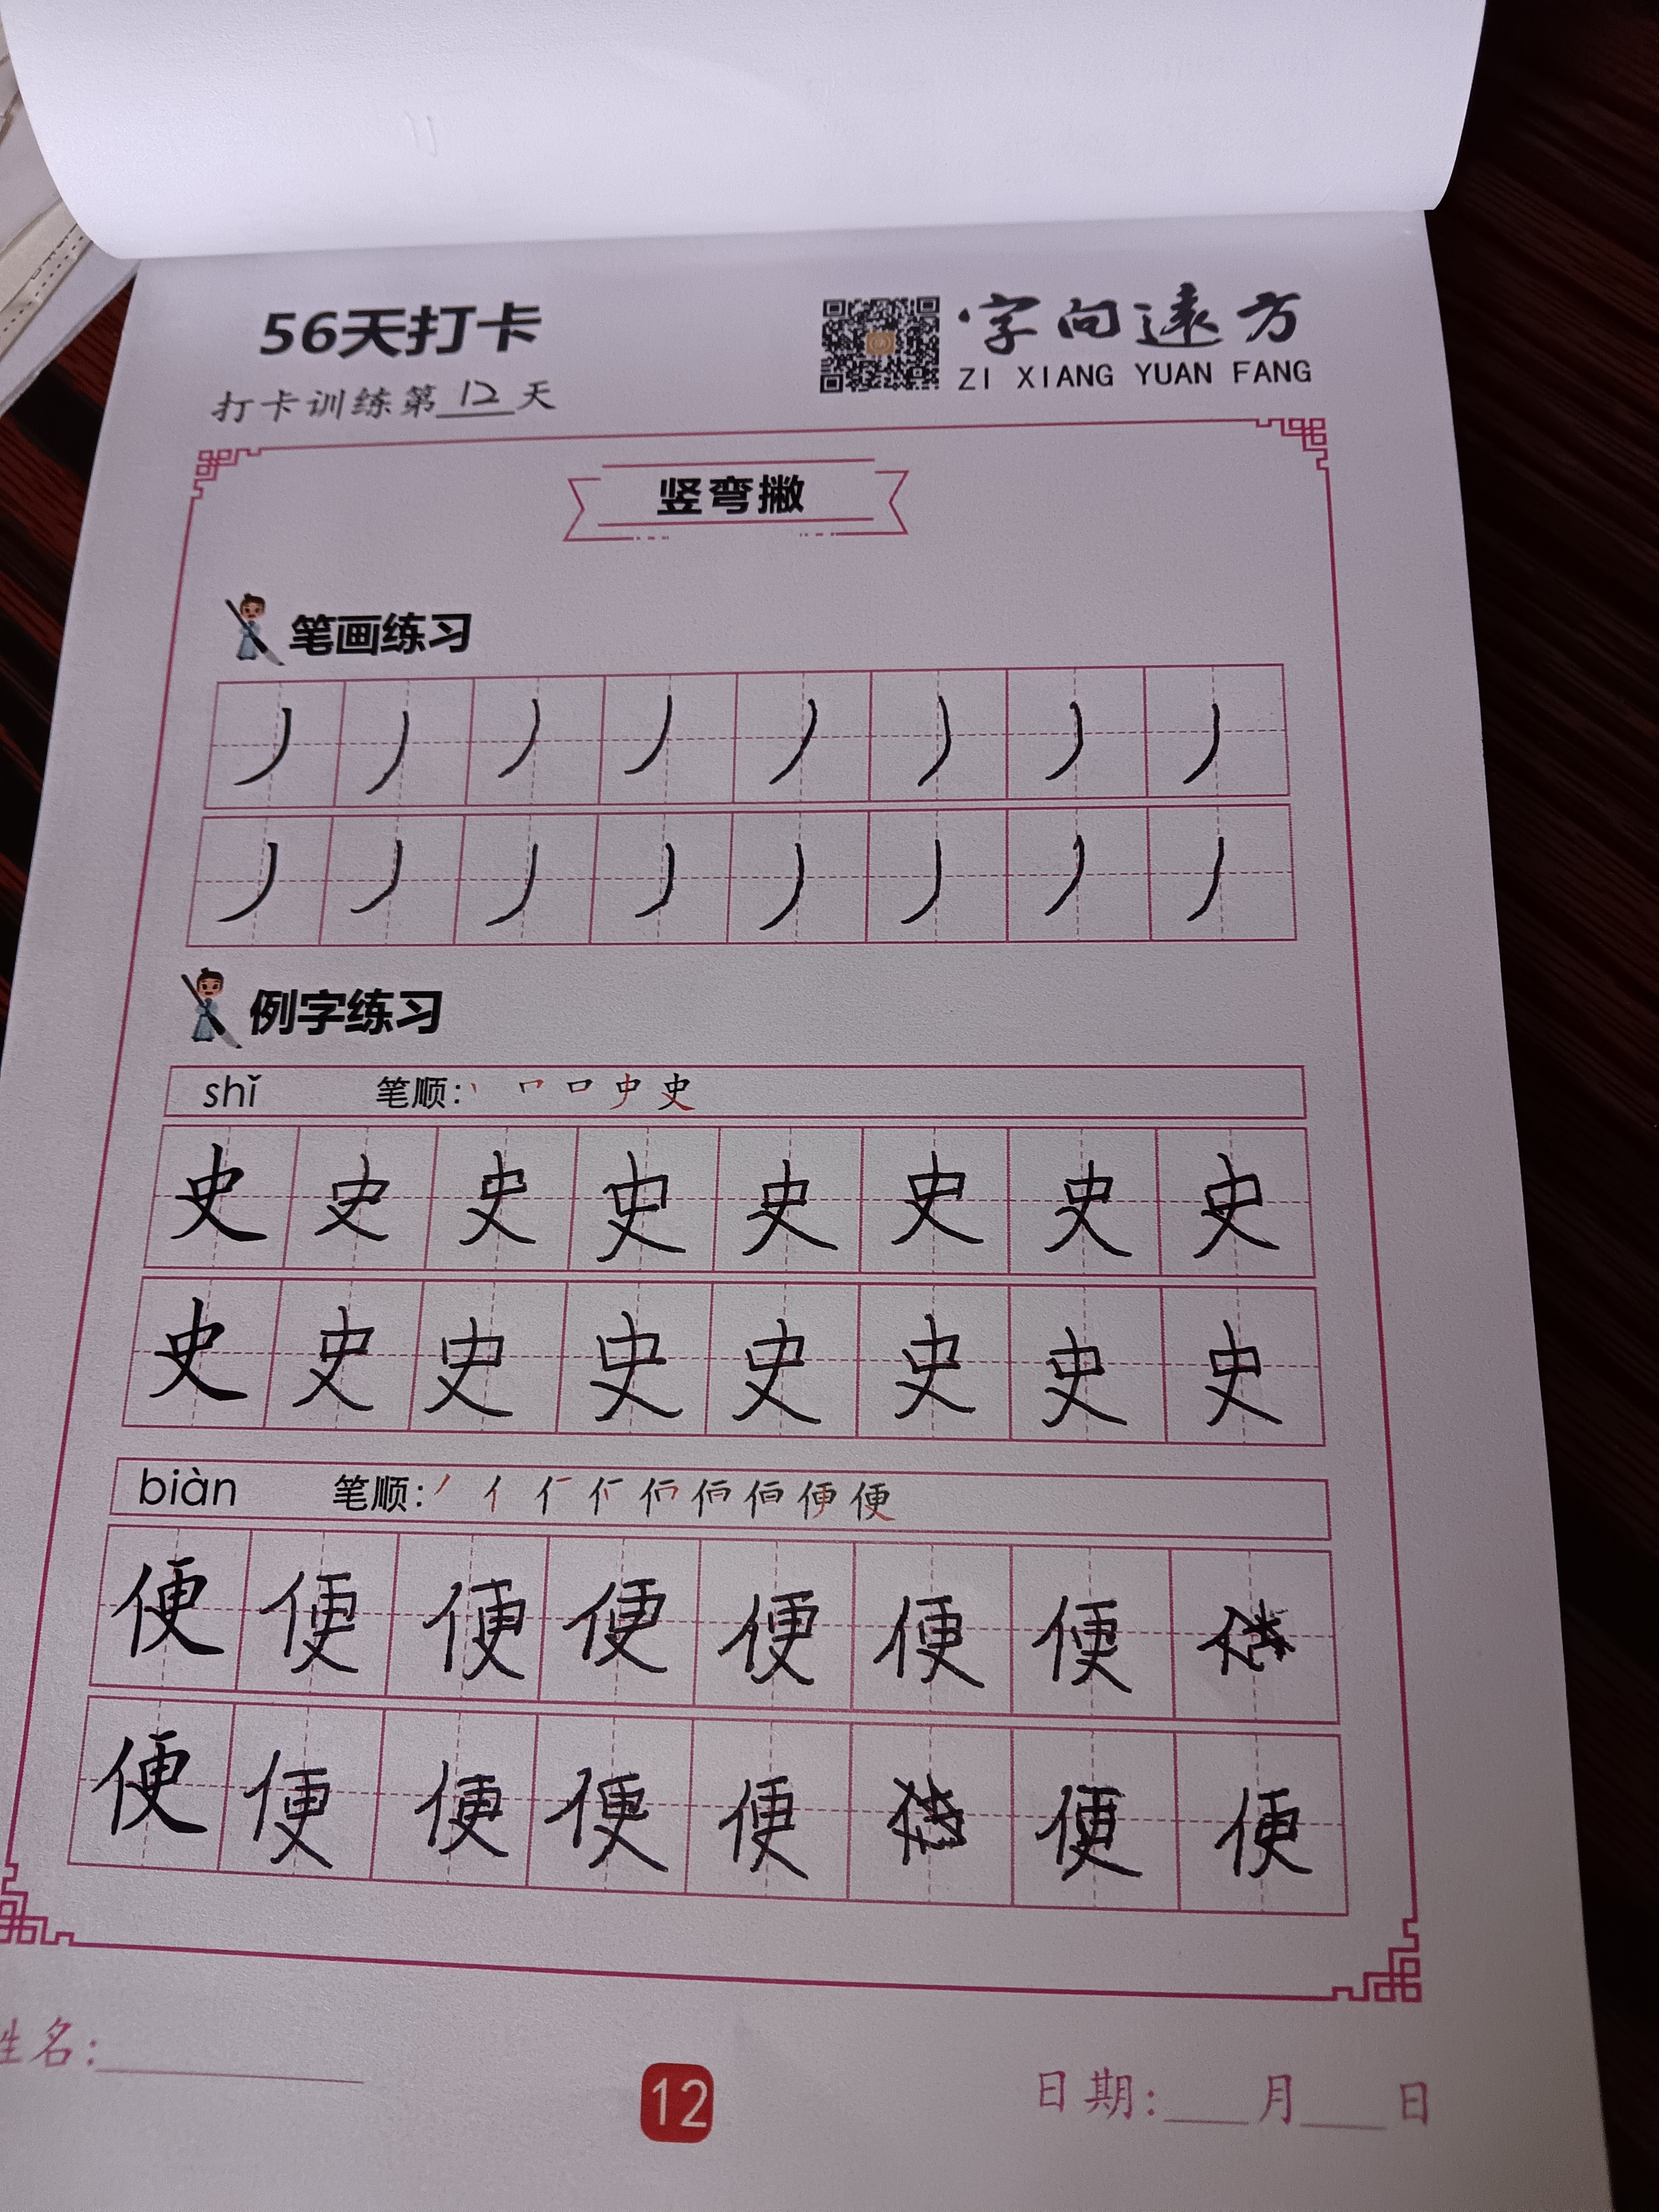 56天打卡
字向远方
ZI XIANG YUAN FANG
打卡训练第12天
竖弯撇
笔画练习
丿丿丿丿丿丿丿丿
丿丿丿丿丿丿丿丿
例字练习
shǐ 笔顺:
史史史史史史史史
史史史史史史史史
biàn 笔顺:
便便便便便便便
便便便便便便便
姓名:
12
日期: 月 日